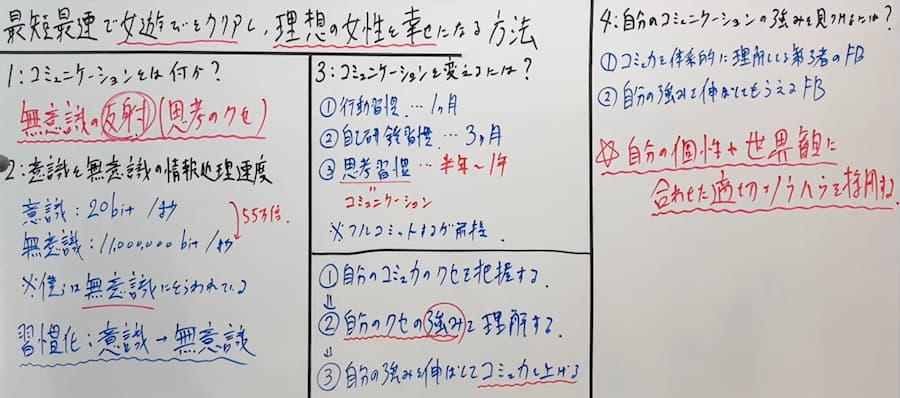 最短最速で女遊びをクリアし、理想の女性を幸せになる方法
1:コミュニケーションとは何か?
無意識の反射(思考のクセ)
2:意識と無意識の情報処理速度
意識:20bit/秒
無意識:11,000,000bit/秒
55万倍.
※僕らは無意識に
習慣化:意識→無意識
3:コミュニケーションを変えるには?
①行動習慣…1ヶ月
②自己研鑽習慣…3ヶ月
③思考習慣…半年~1年
コミュニケーション
※フルコミットするが前提.
①自分のコミュ力のクセを把握する.
⇓
②自分のクセの強みを理解する.
⇓
③自分の強みを伸ばしてコミュ力を上げる
4:自分のコミュニケーションの強みを見つけるには?
①コミュ力を体系的に理解してる第3者のFB
②自分の強みを伸ばしてもらえるFB
☆自分の個性や世界観に
合わせた適切なノウハウを採用する.